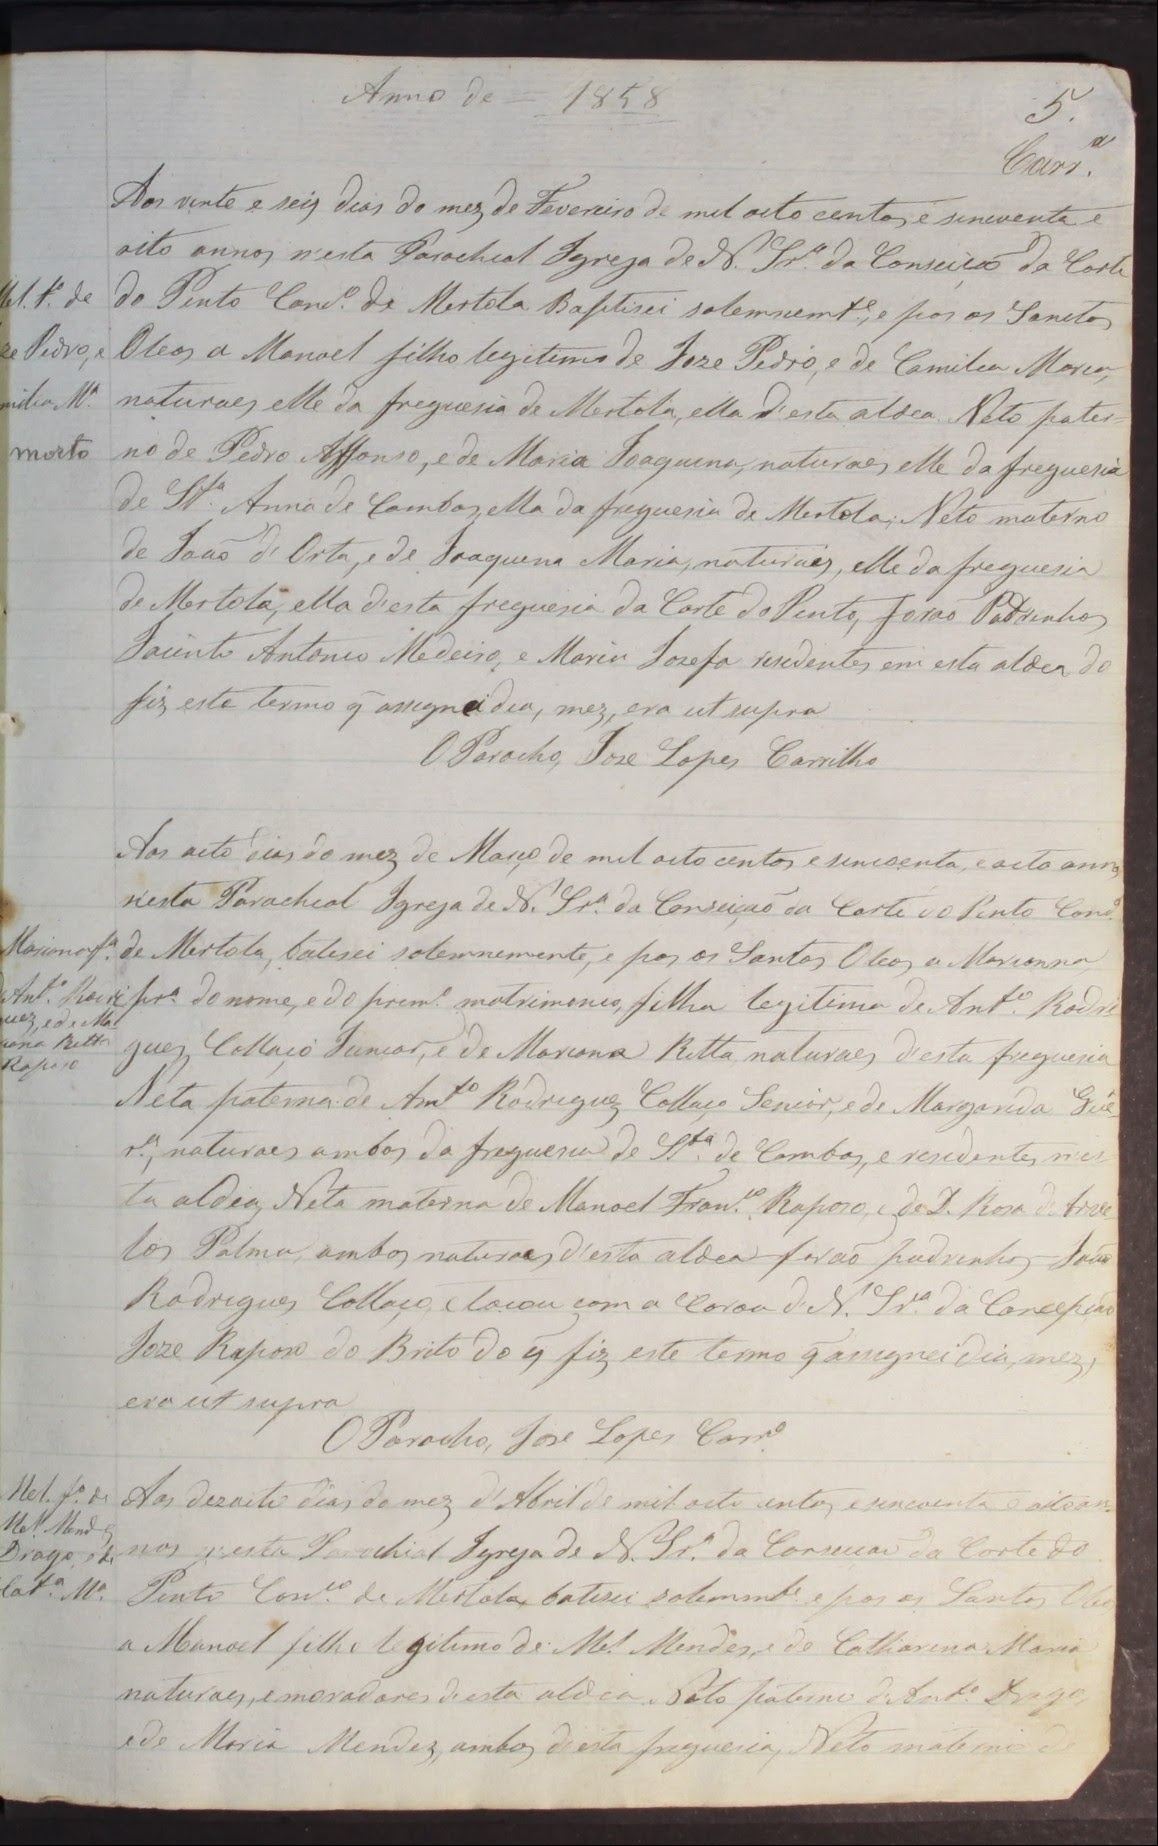 Anno de = 1858
5.
Carr.º
Aos vinte e seis dias do mez de Fevereiro de mil oito centos e sincoenta e
oito annos n'esta Parochial Igreja de N. Srª. da Conseição da Corte
Mel. fº. de
do Pinto Conº. de Mertola Baptisei solemnemte, e pus os Sanctos
ze Pedro, e
Oleos a Manoel filho legitimo de Joze Pedro, e de Camilia Maria,
milia Mª.
naturaes elle da freguesia de Mertola, ella d'esta aldea. Neto pater-
morto
no de Pedro Affonso, e de Maria Joaquina, naturaes elle da freguesia
de Stª. Anna de Cambas, ella da freguesia de Mertola; Neto materno
de João d'Orta, e de Joaquina Maria, naturaes, elle da freguesia
de Mertola, ella d'esta freguesia da Corte do Pinto, forão Padrinhos
Jacinto Antonio Medeiro, e Maria Jozefa residentes em esta aldea do
fiz este termo q̃ assignei dia, mez, era ut supra
O Parocho, Joze Lopes Carrilho
Aos oito dias do mez de Março de mil oito centos e sincoenta, e oito annos
n'esta Parochial Igreja de N. Srª. da Conseição da Corte do Pinto Conº.
Marianna fª.
de Mertola, batisei solemnemente, e pus os Santos Oleos a Marianna
Antº. Rodri
prª. do nome, e do primº. matrimonio, filha legitima de Antº. Rodri
guez, e de Ma
riana Ritta
guez Collaço Junior, e de Mariana Ritta naturaes d'esta freguesia
Raposo
Neta paterna de Antº Rodriguez Collaço Senior, e de Margarida
rª, naturaes ambos da freguesia de Stª. de Cambas, e residentes n'es-
ta aldea, Neta materna de Manoel Franº. Raposo, e de D. Rosa de
los Palma, ambos naturaes d'esta aldea forão padrinhos João
Rodrigues Collaço, e tocou com a Coroa d'N. Srª. da Conceição
Joze Raposo do Brito do q̃ fiz este termo q̃ assignei dia, mez,
era ut supra
O Parocho, Joze Lopes Carrº.
Mel. fº. de
Aos dezoito dias do mez d'Abril de mil oito centos, e sincoenta e oito an-
Mel. Mendez
Drago, e de
nos n'esta Parochial Igreja de N. Srª. da Conseicão da Corte do
Catª. Mª.
Pinto Conº. de Mertola, batisei solemmte. e pus os Santos Oleos
a Manoel filho legitimo de Mel. Mendes, e de Catharina Maria
naturaes, e moradores d'esta aldea. Neto paterno de Antº. Drago,
e de Maria Mendez, ambos d'esta freguesia, Neto materno de